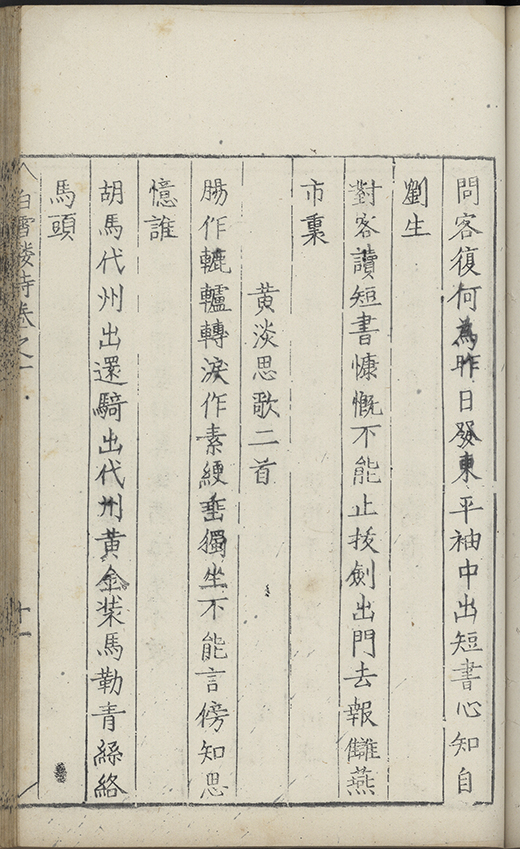 問客復何為昨日發東平袖中出短書心知自
劉生
對客讀短書慷慨不能止拔劍出門去報讎燕
市裏
黃淡思歌二首
腸作轆轤轉淚作素綆垂獨坐不能言傍知思
憶誰
胡馬代州出還騎出代州黃金裝馬勒青絲絡
馬頭
白雪樓詩卷之一
十一